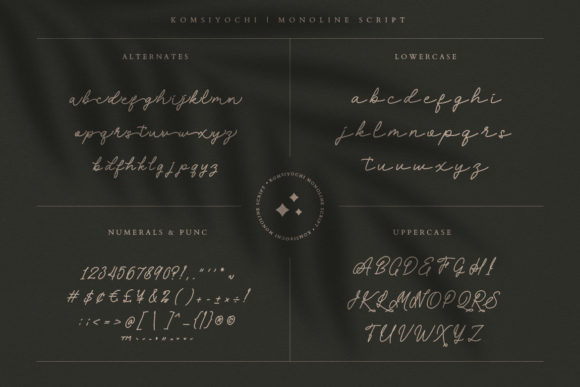 KOMSIYOCHI | MONOLINE SCRIPT
ALTERNATES
abcdefghijklmn
opqrstuvwxyz
bdfhklgjpqyz
LOWERCASE
abcdefghi
jklmnopqrs
tuvwxyz
• KOMSIYOCHI MONOLINE SCRIPT • KOMSIYOCHI MONOLINE SCRIPT
NUMERALS & PUNC
1234567890?!,.“”‘’"
#$¢€£¥&2()+-±×÷!
:;<=>@[\]^_{|}®©
UPPERCASE
ABCDEFGHI
JKLMNOPQRS
TUVWXYZ